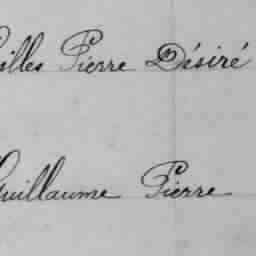 illes Pierre Désiré
Guillaume Pierre